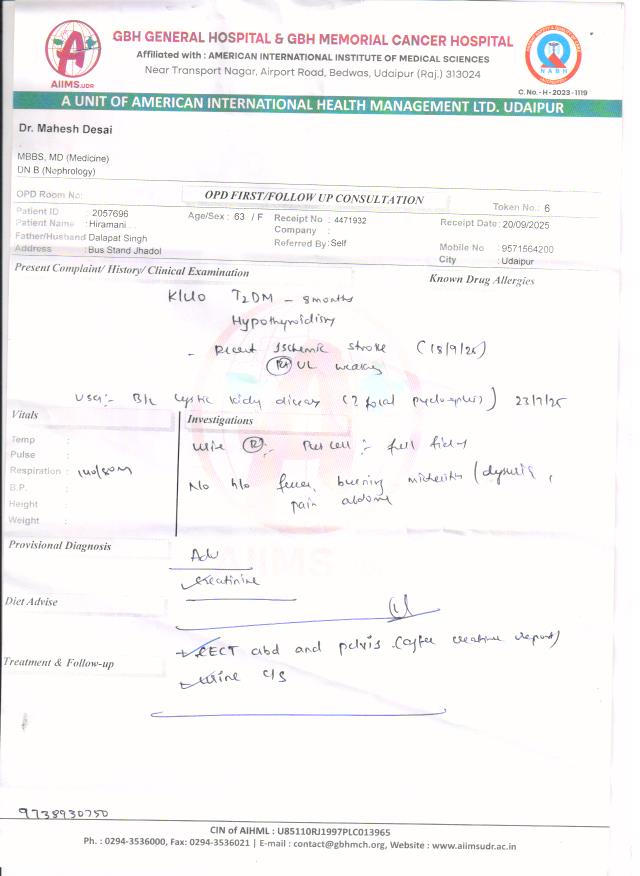 GBH GENERAL HOSPITAL & GBH MEMORIAL CANCER HOSPITAL
Affiliated with : AMERICAN INTERNATIONAL INSTITUTE OF MEDICAL SCIENCES
Near Transport Nagar, Airport Road, Bedwas, Udaipur (Raj.) 313024
AIIMS.UDR
NABH
C. No. - H - 2023 - 1119
A UNIT OF AMERICAN INTERNATIONAL HEALTH MANAGEMENT LTD. UDAIPUR
Dr. Mahesh Desai
MBBS, MD (Medicine)
DN B (Nephrology)
OPD Room No:
OPD FIRST/FOLLOW UP CONSULTATION
Token No.: 6
Patient ID : 2057696 Age/Sex : 63 / F Receipt No : 4471932 Receipt Date : 20/09/2025
Patient Name : Hiramani Company :
Father/Husband Dalapat Singh Referred By : Self Mobile No : 9571564200
Address : Bus Stand Jhadol City : Udaipur
Present Complaint/ History/ Clinical Examination Known Drug Allergies
K/c/o T2DM - 8 months
Hypothyroidism
- Recent Ischemic stroke (18/9/25)
UL weakness
USG:- B/L cystic kidney disease (? focal pyelonephritis) 23/7/25
Vitals Investigations
Temp :
Pulse :
Respiration : 140/80
B.P. :
Height :
Weight :
Urine (R):- Pus cell :- full field
No h/o fever, burning micturition / dysuria,
pain abdomen
Provisional Diagnosis
Adv
Creatinine
Diet Advise
CECT abd and pelvis (after creatinine report)
Treatment & Follow-up
Urine C/S
9738930750
CIN of AIHML : U85110RJ1997PLC013965
Ph. : 0294-3536000, Fax: 0294-3536021 | E-mail : contact@gbhmch.org, Website : www.aiimsudr.ac.in